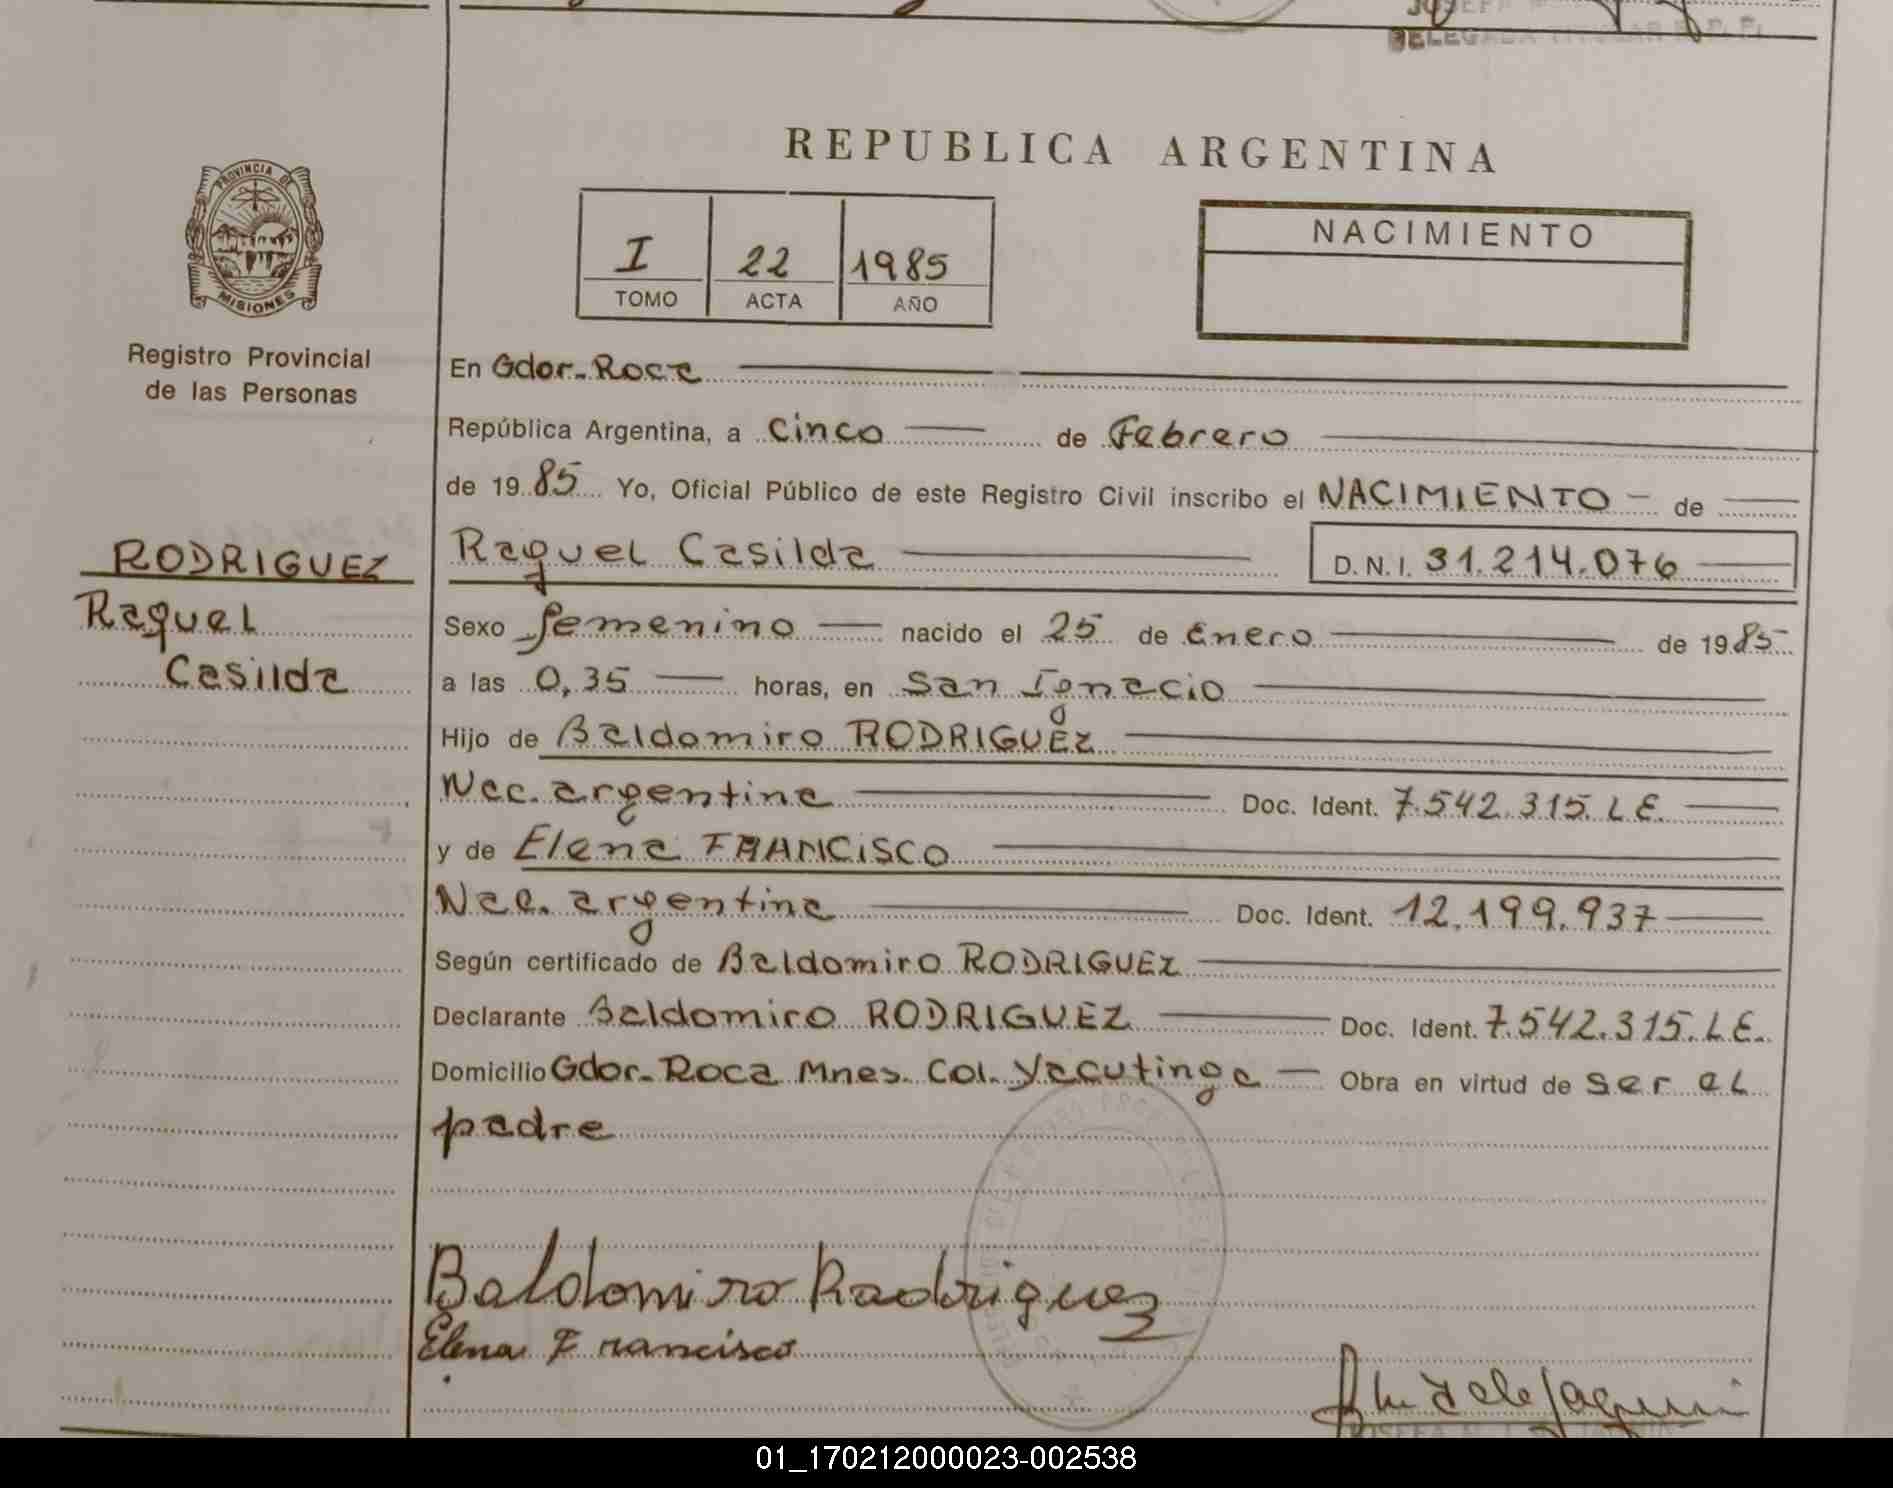 DELEGADA TITULAR R. P. P.
REPUBLICA ARGENTINA
PROVINCIA DE
MISIONES
Registro Provincial
de las Personas
I 22 1985
TOMO ACTA AÑO
NACIMIENTO
En Gdor. Roca
República Argentina, a cinco de Febrero
de 1985 Yo, Oficial Público de este Registro Civil inscribo el NACIMIENTO de
RODRIGUEZ
Raquel
Casilda
Raquel Casilda D.N.I. 31.214.076
Sexo femenino nacido el 25 de Enero de 1985
a las 0,35 horas, en San Ignacio
Hijo de Baldomiro RODRIGUEZ
Nac. argentina Doc. Ident. 7.542.315. L E.
y de Elena FRANCISCO
Nac. argentina Doc. Ident. 12.199.937
Según certificado de Baldomiro RODRIGUEZ
Declarante Baldomiro RODRIGUEZ Doc. Ident. 7.542.315. L E.
Domicilio Gdor. Roca Mnes. Col. Yacutinga Obra en virtud de ser el
padre
Baldomiro Rodriguez
Elena Francisco
01_170212000023-002538